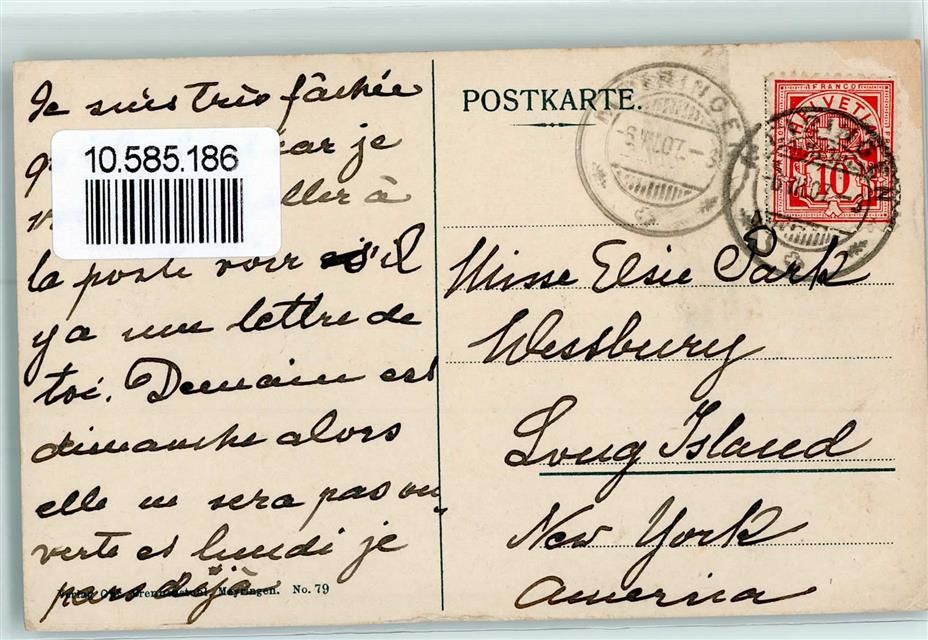 Je suis très fâchée
10.585.186
car je
aller à
la poste voir s'il
y a une lettre de
toi. Demain est
dimanche alors
elle ne sera pas ou
verte et lundi je
pars déjà
Verlag Brennenstuhl, Meyringen. No. 79
POSTKARTE.
MEIRINGEN
6.VII.07.-3
FRANCO
HELVETIA
10
MEIRINGEN
Misse Elsie Park
Westbury
Long Island
New York
America